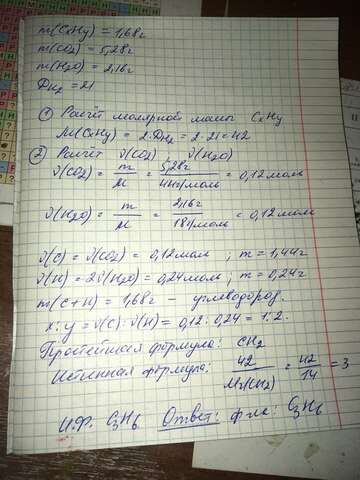 m(CxHy) = 1,68г
m(CO2) = 5,28г
m(H2O) = 2,16г
DH2 = 21
① Расчёт молярной массы CxHy
M(CxHy) = 2·DH2 = 2·21 = 42
② Расчёт ν(CO2) ν(H2O)
ν(CO2) = m/M = 5,28г/44г/моль = 0,12моль
ν(H2O) = m/M = 2,16г/18г/моль = 0,12моль
ν(C) = ν(CO2) = 0,12моль ; m = 1,44г
ν(H) = 2ν(H2O) = 0,24моль ; m = 0,24г
m(C+H) = 1,68г – углеводород.
x:y = ν(C):ν(H) = 0,12:0,24 = 1:2.
Простейшая формула: CH2
Истинная формула: 42/Mr(CH2) = 42/14 = 3
И.Ф. C3H6 Ответ: ф-ла: C3H6